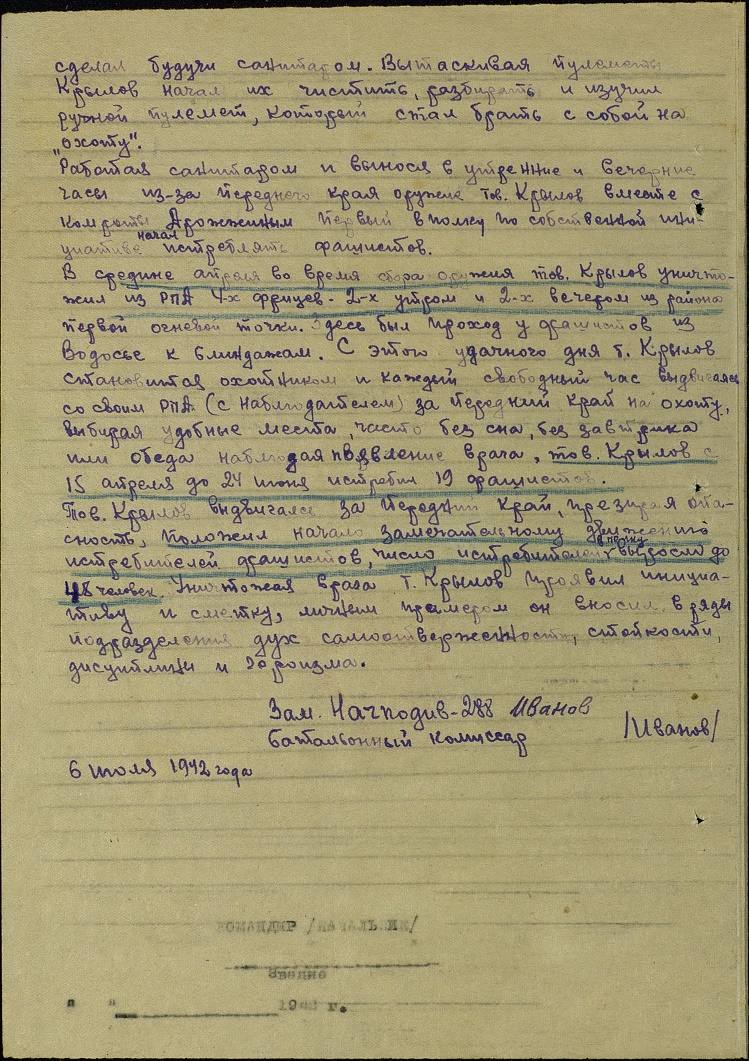 сделал будучи санитаром. Вытаскивая пулеметы
Крылов начал их чистить, разбирать и изучил
ручной пулемет, который стал брать с собой на
"охоту".
Работая санитаром и вынося в утренние и вечерние
часы из-за переднего края оружие тов. Крылов вместе с
комроты Дрожжиным первый в полку по собственной ини-
циативе начал истреблять фашистов.
В средине апреля во время сбора оружия тов. Крылов уничто-
жил из РПД 4-х фрицев - 2-х утром и 2-х вечером из района
первой огневой точки. Здесь был проход у фашистов из
Водосье к блиндажам. С этого удачного дня т. Крылов
становится охотником и каждый свободный час выдвигаясь
со своим РПД (с наблюдателем) за передний край на охоту,
выбирая удобные места, часто без сна, без завтрака
или обеда наблюдая появление врага, тов. Крылов с
15 апреля до 24 июня истребил 19 фашистов.
Тов. Крылов выдвигаясь за передний край, презирая опа-
сность, положил начало замечательному движению
истребителей фашистов, число истребителей в полку выросли до
48 человек. Уничтожая врага т. Крылов проявил инициа-
тиву и сметку, личным примером он вносил в ряды
подразделения дух самоотверженности, стойкости,
дисциплины и героизма.
Зам. Начподив-288 Иванов
батальонный комиссар /Иванов/
6 июля 1942 года
КОМАНДИР /НАЧАЛЬНИК/
Звание
" " 194 г.